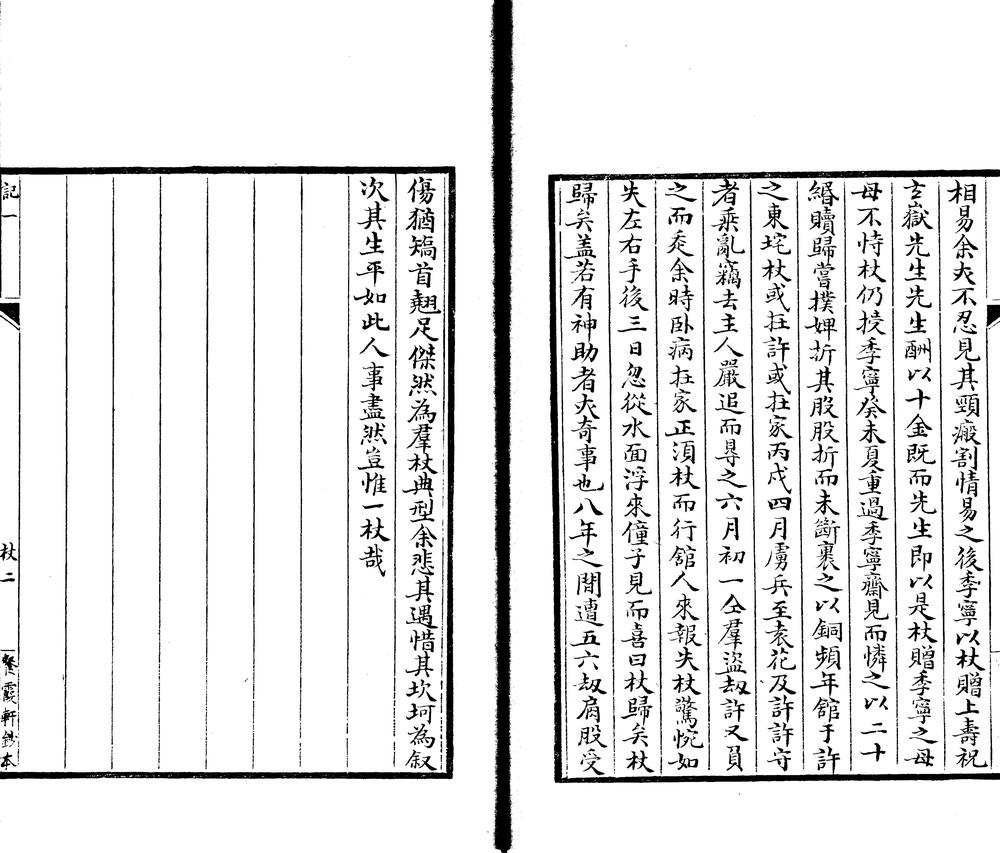 相易余大不忍見其頸瘢割情易之後季寧以杖贈上壽祝
玄嶽先生先生酬以十金既而先生即以是杖贈季寧之母
母不恃杖仍授季寧癸未夏重過季寧齋見而憐之以二十
緡贖歸嘗撲婢折其股股折而未斷裹之以銅頻年舘于許
之東垞杖或在許或在家丙戌四月虜兵至袁花及許許守
者乘亂竊去主人嚴追而尋之六月初一仝羣盜劫許又負
之而黍余時卧病在家正湏杖而行舘人來報失杖驚惋如
失左右手後三日忽從水面浮來僮子見而喜曰杖歸矣杖
歸矣盖若有神助者大奇事也八年之間遭五六劫肩股受
傷猶矯首翹足傑然為羣杖典型余悲其遇惜其坎坷為叙
次其生平如此人事盡然豈惟一杖哉
記一
杖二
餐霞軒鈔本